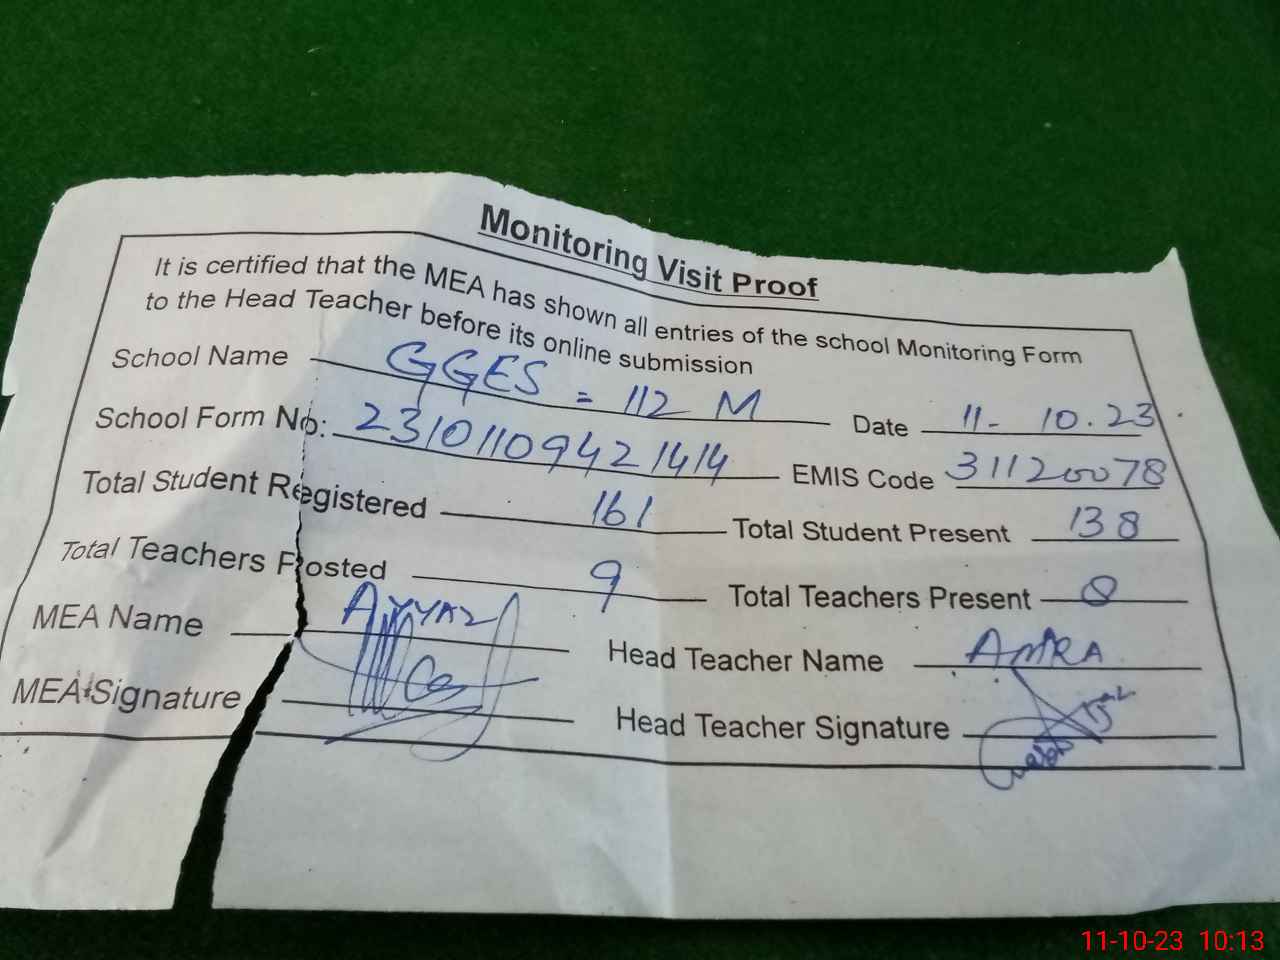 Monitoring Visit Proof
It is certified that the MEA has shown all entries of the school Monitoring Form
to the Head Teacher before its online submission
School Name GGES = 112 M Date 11- 10.23
School Form No: 23101109421414 EMIS Code 31120078
Total Student Registered 161 Total Student Present 138
Total Teachers Posted 9 Total Teachers Present 8
MEA Name AYYAZ Head Teacher Name AMRA
MEA Signature Head Teacher Signature
11-10-23 10:13